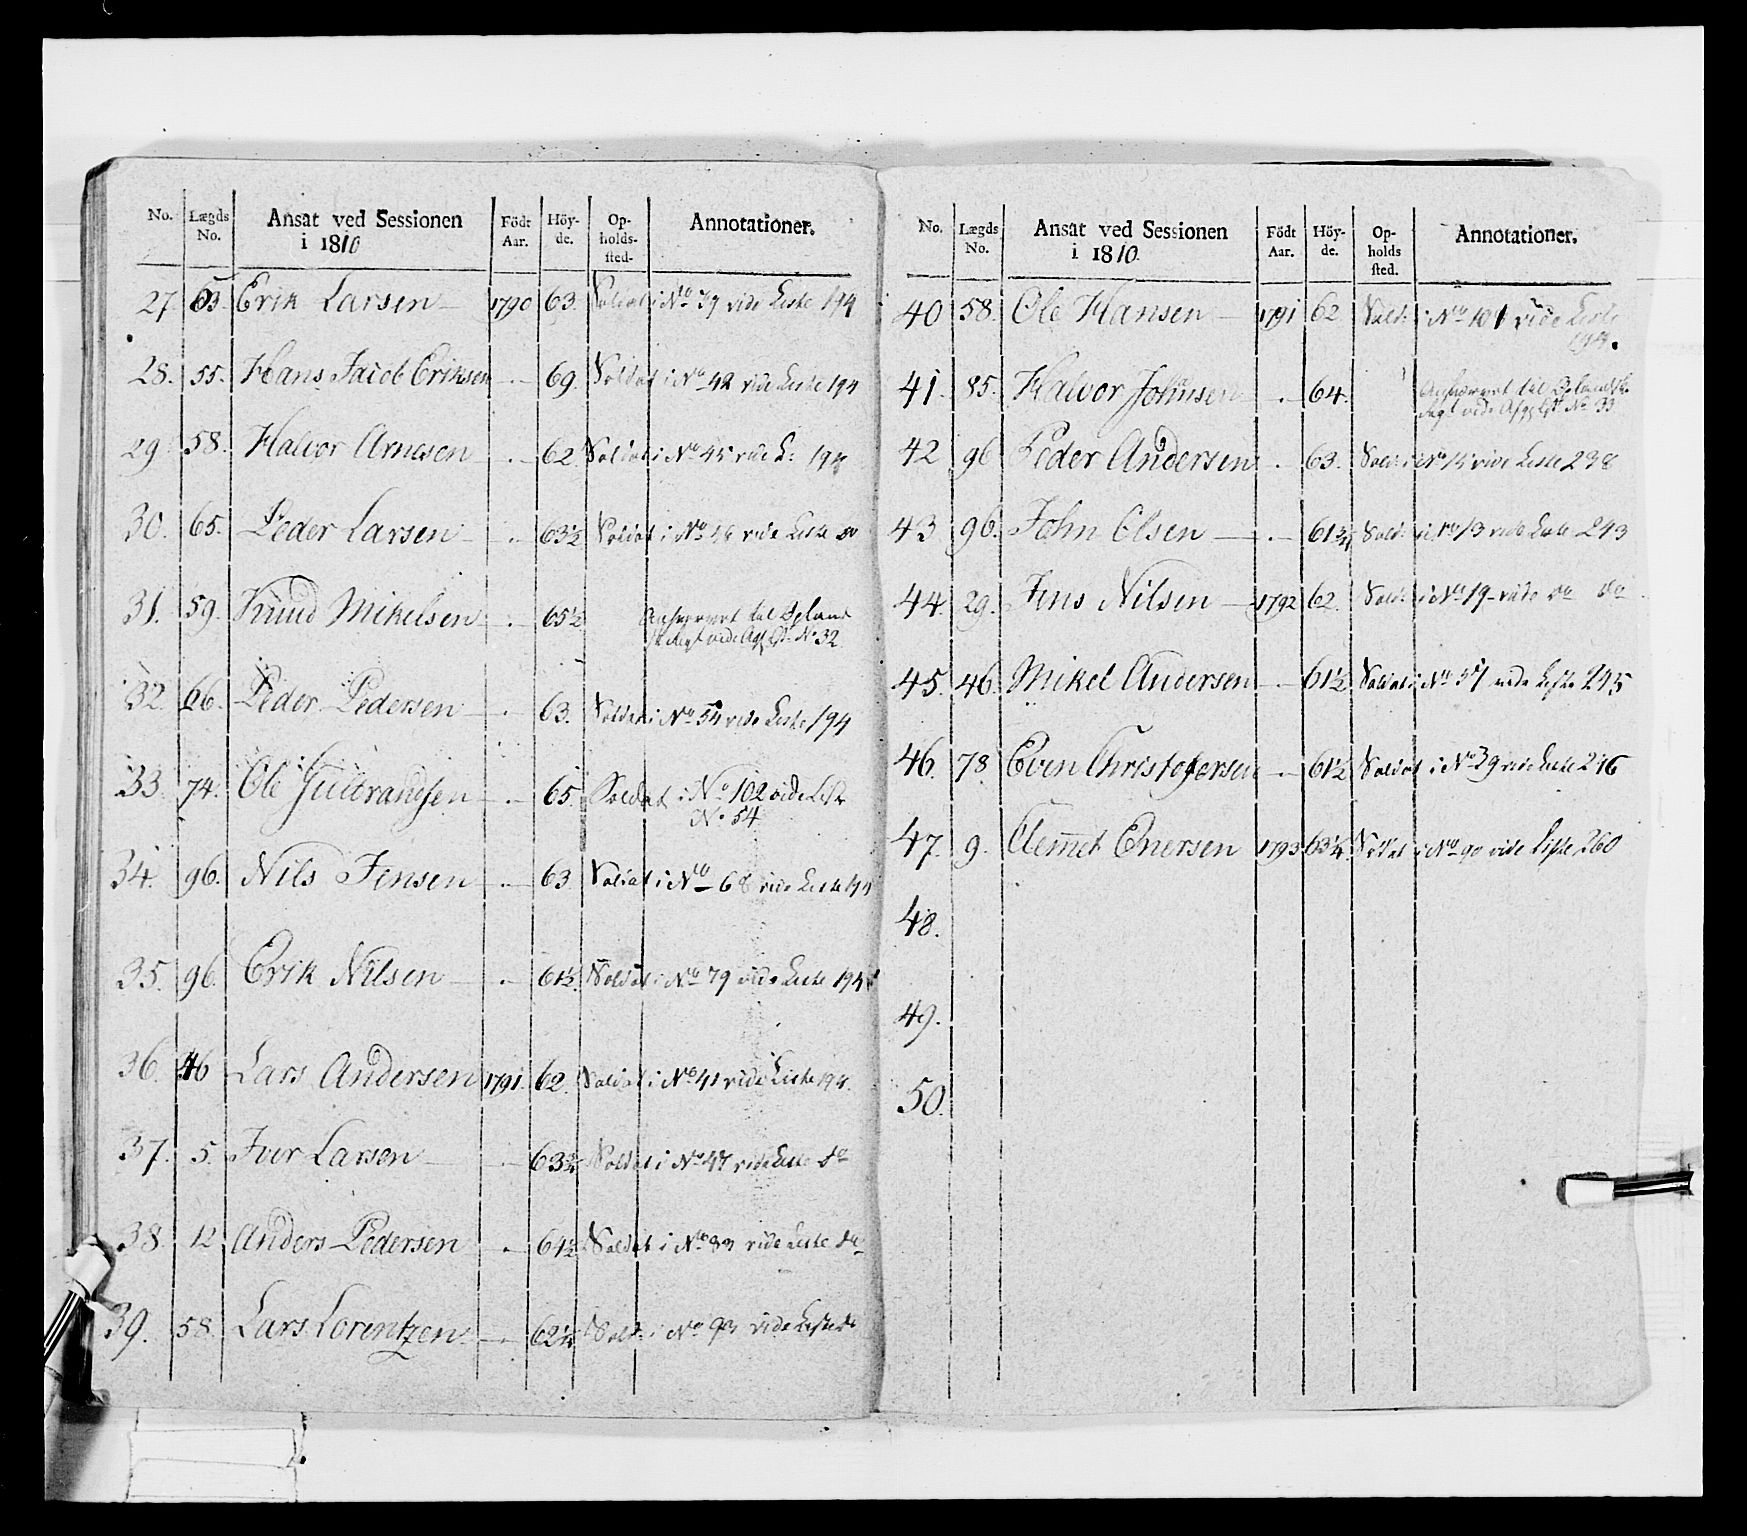 No. Lægds No. Ansat ved Sessionen i 1810 Födt Aar. Höyde. Opholdssted. Annotationer.
27. 63. Erik Larsen 1790 63. Soldat i No 39 vide Liste 194
28. 55. Hans Jacob Eriksen 69. Soldat i No 42 vide Liste 194
29. 58. Halvor Arnesen 62 Soldat i No 45 vide L: 194
30. 65. Peder Larsen 63½ Soldat i No 46 vide Liste do
31. 59. Knud Mikelsen 65½ vide No 32
32. 66. Peder Pedersen 63. Soldat i No 54 vide Liste 194
33. 74. Ole Gulbrandsen 65. Soldat i No 102 vide Liste
No 54
34. 96. Nils Jensen 63 Soldat i No 68 vide Liste 194
35. 96. Erik Nilsen 61½ Soldat i No 79 vide Liste 194
36. 46 Lars Andersen 1791. 62. Soldat i No 41 vide Liste 194.
37. 5. Iver Larsen 63¾ Soldat i No 47 vide Liste do
38. 12 Anders Pedersen 61½ Soldat i No 89 vide Liste do
39. 58. Lars Lorentzen 62¼ Sold: i No 93 vide Liste do
No. Lægds No. Ansat ved Sessionen i 1810. Födt Aar. Höyde. Opholds sted. Annotationer.
40 58. Ole Hansen 1791 62 Sold: i No 101 vide Liste
194.
41. 85. Halvor Johnsen 64. til
vide No 33
42 96 Peder Andersen 63. Sold: i No 15 vide Liste 238
43. 96. John Olsen 61¾ Sold: i No 13 vide Liste 243
44. 29. Jens Nilsen 1792 62. Sold: i No 19 vide do do
45. 46. Mikel Andersen 61½ Soldat i No 37 vide Liste 245
46. 78. Even Christofersen 61½ Soldat i No 39 vide Liste 246
47. 9. Clemet Enersen 1793 63¼ Soldat i No 90 vide Liste 260
48.
49.
50.